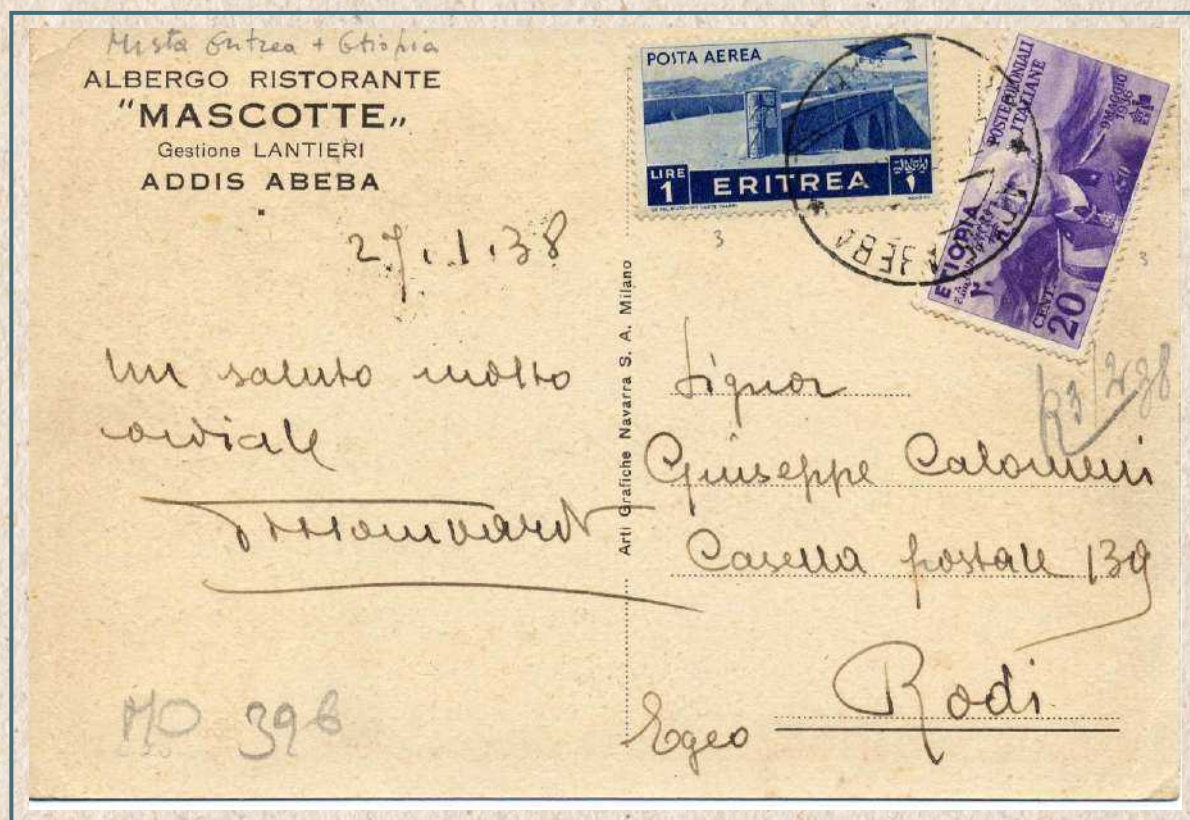 Mista Eritrea + Etiopia
ALBERGO RISTORANTE
"MASCOTTE„
Gestione LANTIERI
ADDIS ABEBA
27.1.38
Un saluto molto
cordiale
MO 396
Arti Grafiche Navarra S. A. Milano
POSTA AEREA
LIRE
1
ERITREA
POSTE COLONIALI
ITALIANE
9 MAGGIO
1936
ETIOPIA
CENT.
20
3
3
Signor
Giuseppe Calomeni
Casella postale 139
Rodi
Egeo